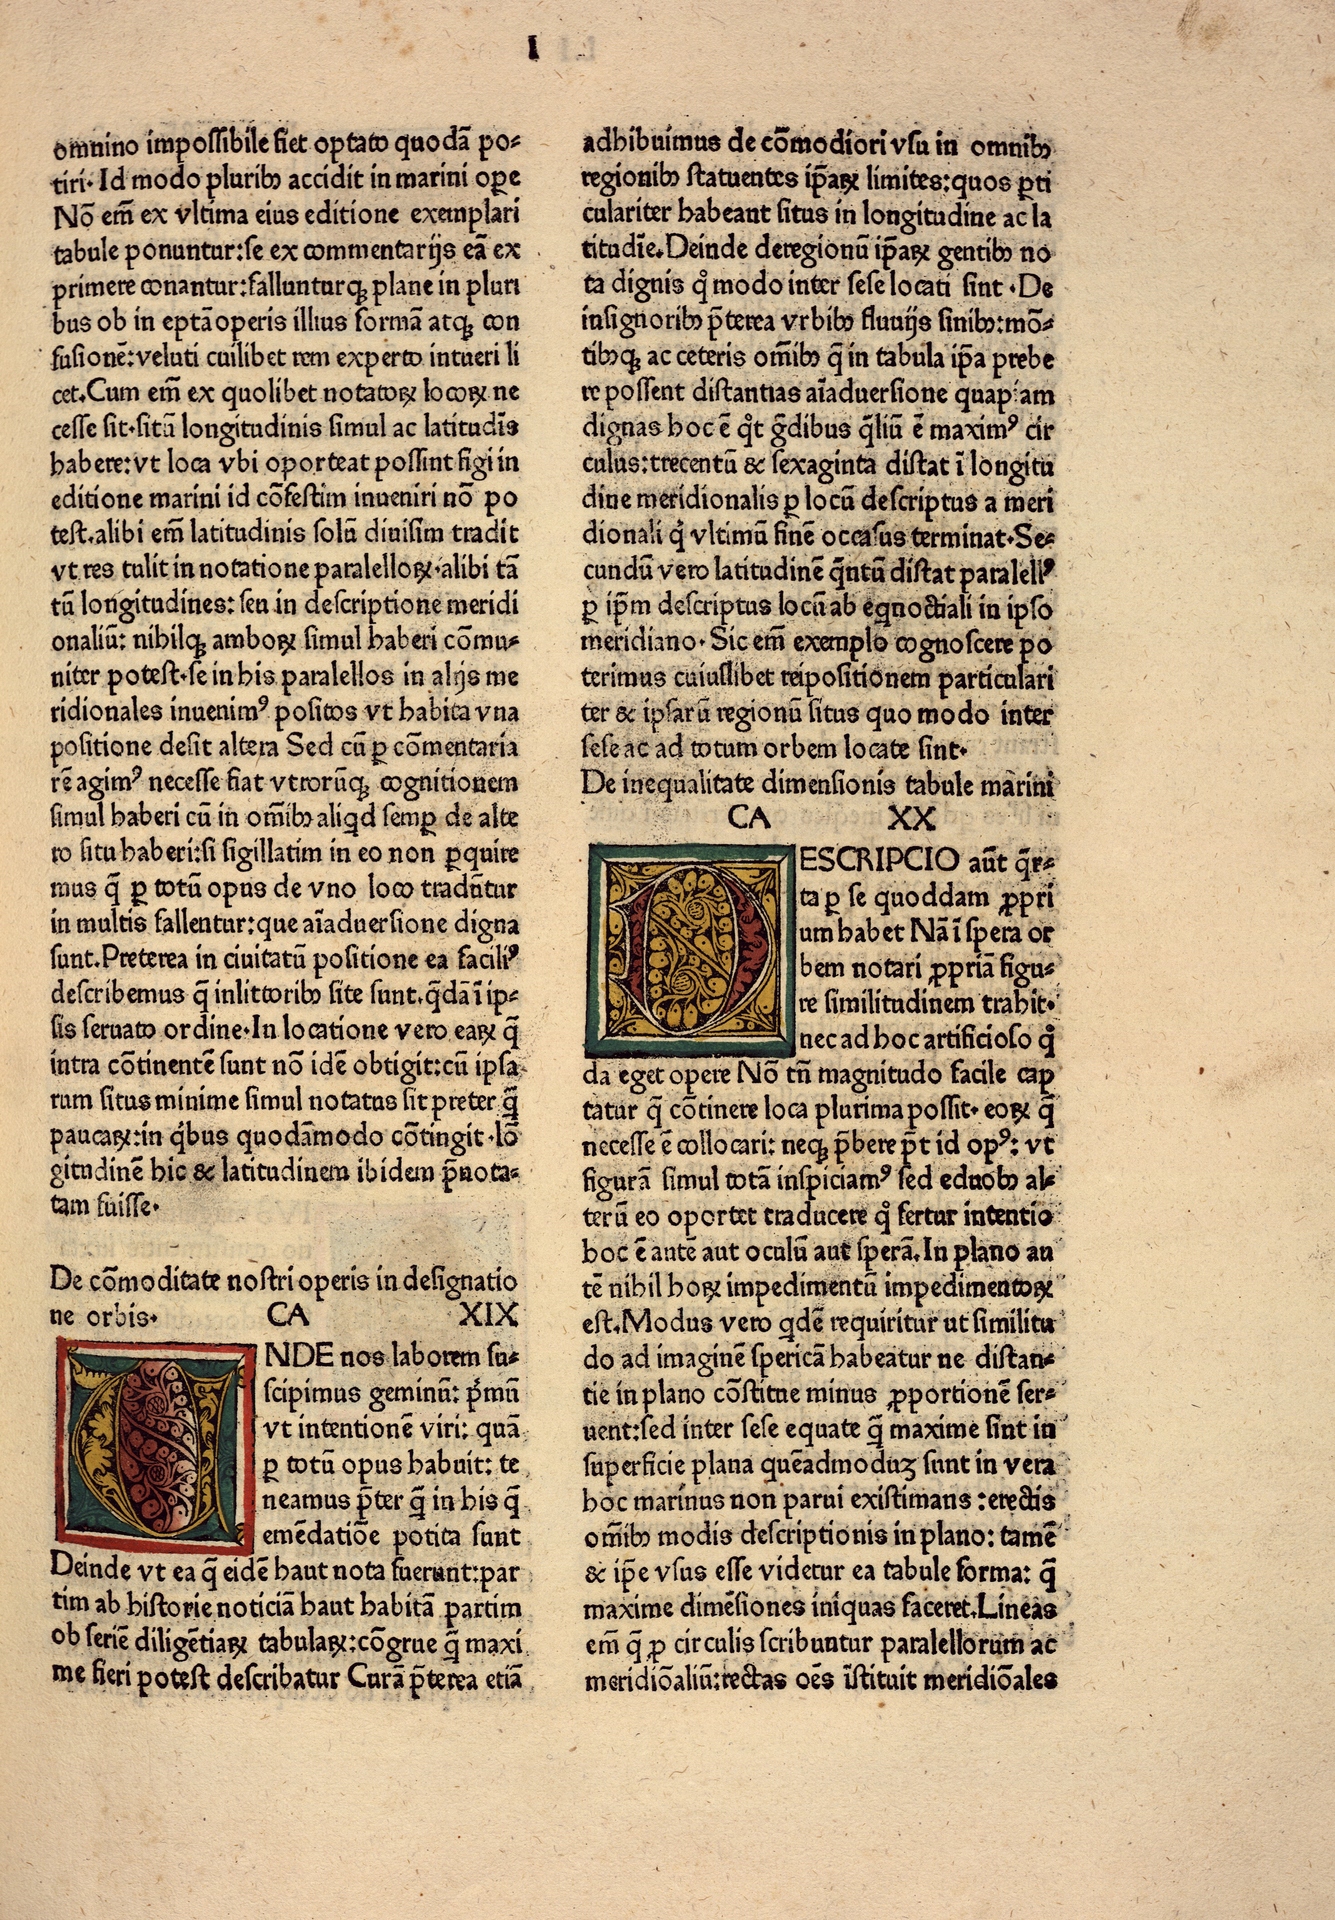 I
omnino impossibile fiet optato quodā po⸗
tiri· Id modo pluribꝫ accidit in marini oꝑe
Nō em̄ ex vltima eius editione exemplari
tabule ponuntur:se ex commentarijs eā ex
primere conantur:fallunturqꝫ plane in pluri
bus ob in eptāoperis illius formā atqꝫ con
fusionē:veluti cuilibet rem experto intueri li
cet.Cum em̄ ex quolibet notatoꝝ locoꝝ ne
cesse sit·sitū longitudinis simul ac latitudīs
habere:vt loca vbi oporteat possint figi in
editione marini id cōfestim inueniri nō po
test.alibi em̄ latitudinis solū diuisim tradit
vt res tulit in notatione paralelloꝝ·alibi tā
tū longitudines: seu in descriptione meridi
onaliū: nihilqꝫ amboꝝ simul haberi cōmu⸗
niter potest·se in his paralellos in alijs me
ridionales inuenimꝰ positos vt habita vna
positione desit altera Sed cū ꝑ cōmentaria
rē agimꝰ necesse fiat vtrorūqꝫ cognitionem
simul haberi cū in om̄ibꝫ aliqd semꝑ de alte
ro situ haberi:si sigillatim in eo non ꝑquire
mus q̄ ꝑ totū opus de vno loco tradūtur
in multis fallentur:que aīaduersione digna
sunt.Preterea in ciuitatū positione ea faciliꝰ
describemus q̄ inlittoribꝫ site sunt.q̄dā ī ip⸗
sis seruato ordine·In locatione vero eaꝝ q̄
intra cōtinentē sunt nō idē obtigit:cū ipsa
rum situs minime simul notatus sit preter q̄
paucaꝝ:in qͥbus quodāmodo cōtingit ·lō
gitudinē hic & latitudinem ibidem p̄nota⸗
tam fuisse·
De cōmoditate nostri operis in designatio
ne orbis· CA XIX
VNDE nos laborem su⸗
scipimus geminū: pͥmū
vt intentionē viri: quā
ꝑ totū opus habuit: te
neamus p̄ter q̄ in his q̄
emēdatiōe potita sunt
Deinde vt ea q̄ eidē haut nota fuerunt:par
tim ab historie noticiā haut habitā partim
ob seriē diligētiaꝝ tabulaꝝ:cōgrue q̄ maxi
me fieri potest describatur Curā p̄terea etiā
adhibuimus de cōmodiori vsu in omnibꝫ
regionibꝫ statuentes ip̄aꝝ limites:quos ꝑti
culariter habeant situs in longitudine ac la
titudīe.Deinde deregionū ip̄aꝝ gentibꝫ no
ta dignis qͦ modo inter sese locati sint ·De
insignoribꝫ p̄terea vrbibꝫ fluuijs sinibꝫ:mō⸗
tibꝫqꝫ ac ceteris om̄ibꝫ q̄ in tabula ip̄a prebe
re possent distantias aīaduersione quapiam
dignas hoc ē qͦt gͣdibus q̄liū ē maximꝰ cir
culus:trecentū & sexaginta distat ī longitu
dine meridionalis ꝑ locū descriptus a meri
dionali qͥ vltimū finē occasus terminat·Se⸗
cundū vero latitudinē q̄ntū distat paralellꝰ
ꝑ ip̄m descriptus locū ab eqnoctiali in ipso
meridiano· Sic em̄ exemplo cognoscere po
terimus cuiuslibet rei positionem particulari
ter & ipsarū regionū situs quo modo inter
sese ac ad totum orbem locate sint·
De inequalitate dimensionis tabule marini
CA XX
DESCRIPCIO aūt q̄r⸗
ta ꝑ se quoddam ꝓpri
um habet Nā ī spera or
bem notari ꝓpriā figu⸗
re similitudinem trahit·
nec ad hoc artificioso qͦ
da eget opere Nō tn̄ magnitudo facile cap
tatur q̄ cōtinere loca plurima possit· eoꝝ q̄
necesse ē collocari: neqꝫ p̄bere p̄t id opꝰ: vt
figurā simul totā inspiciamꝰ sed eduobꝫ al⸗
terū eo oportet traducere qͦ fertur intentio
hoc ē ante aut oculū aut sperā.In plano au
tē nihil hoꝝ impedimentū impedimentoꝝ
est.Modus vero qdē requiritur ut similitu
do ad imaginē spericā habeatur ne distan⸗
tie in plano cōstitue minus ꝓportionē ser⸗
uent:sed inter sese equate q̄ maxime sint in
superficie plana quēadmoduꝫ sunt in vera
hoc marinus non parui existimans :erectis
om̄ibꝫ modis descriptionis in plano: tamē
& ip̄e vsus esse videtur ea tabule forma: q̄
maxime dimēsiones iniquas faceret.Lineas
em̄ q̄ ꝓ circulis scribuntur paralellorum ac
meridiōaliū:rectas oēs īstituit meridiōales